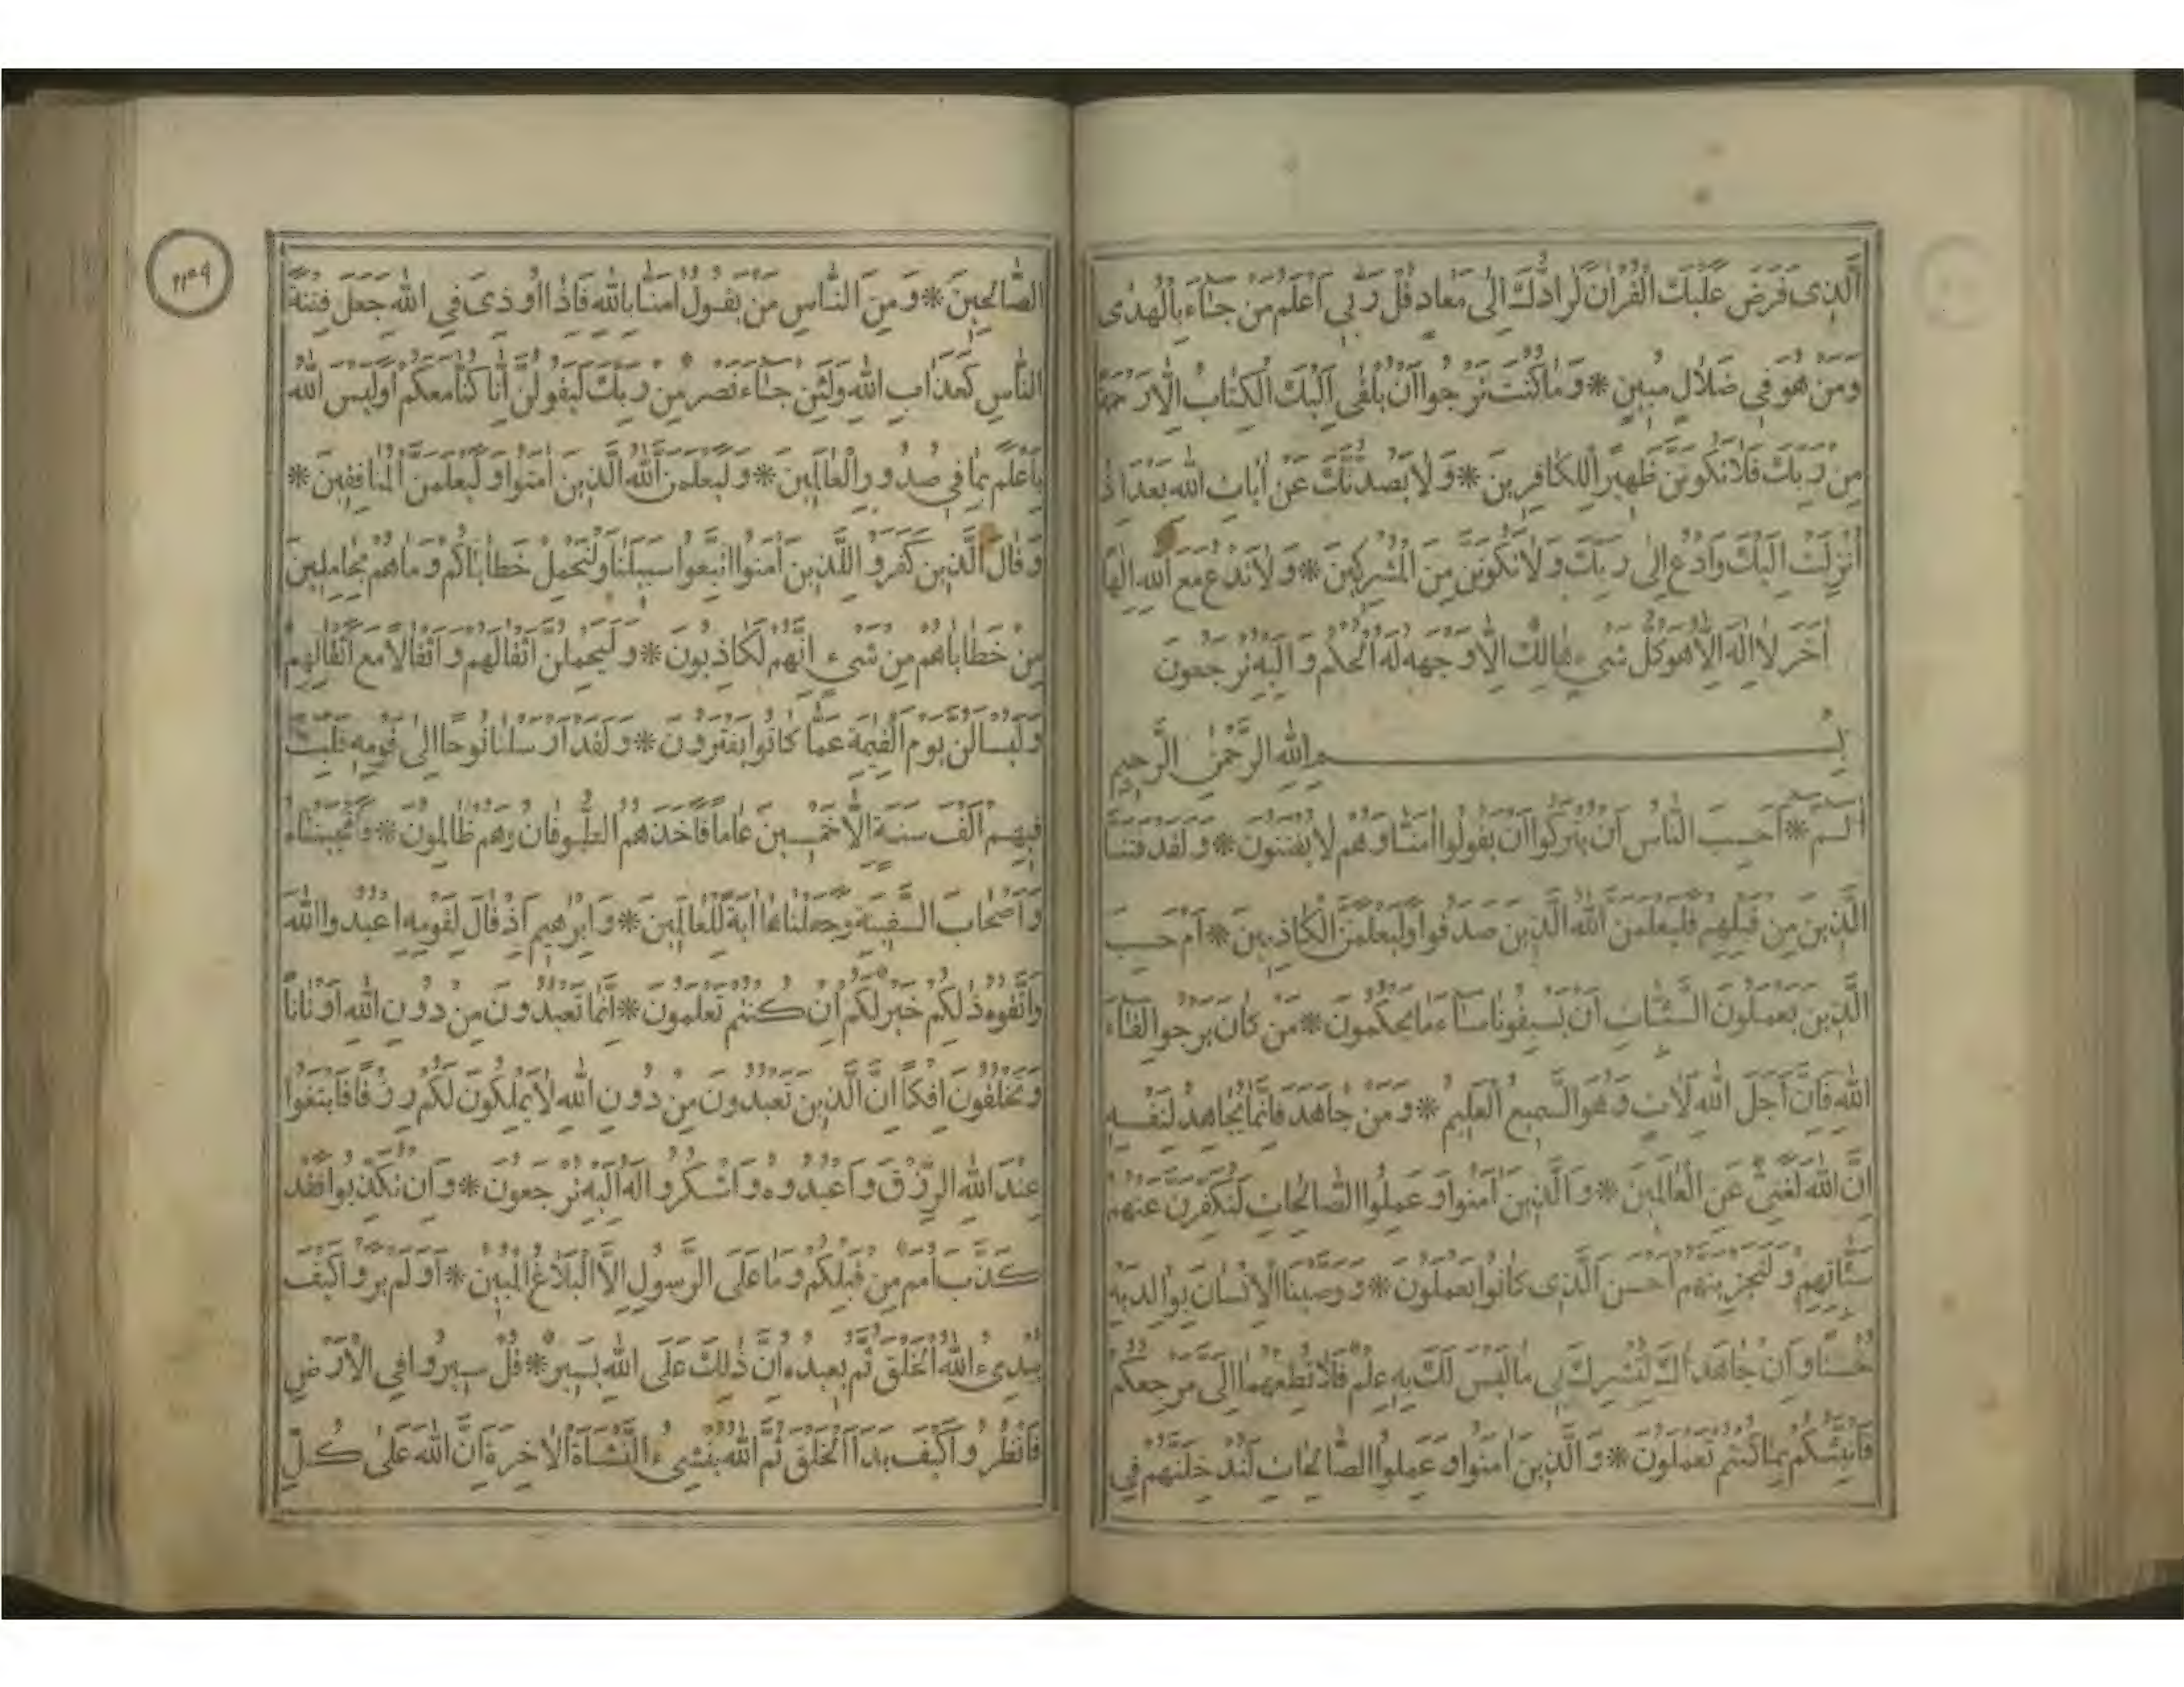 الَّذِى فَرَضَ عَلَيْكَ الْقُرْاٰنَ لَرَادُّكَ اِلٰى مَعَادٍ قُلْ رَبِّى اَعْلَمُ مَنْ جَاءَ بِالْهُدٰى
وَمَنْ هُوَ فِى ضَلَالٍ مُبِينٍ * وَمَا كُنْتَ تَرْجُوا اَنْ يُلْقٰى اِلَيْكَ الْكِتَابُ اِلَّا رَحْمَةً
مِنْ رَبِّكَ فَلَا تَكُونَنَّ ظَهِيرًا لِلْكَافِرِينَ * وَلَا يَصُدُّنَّكَ عَنْ اٰيَاتِ اللّٰهِ بَعْدَ اِذْ
اُنْزِلَتْ اِلَيْكَ وَادْعُ اِلٰى رَبِّكَ وَلَا تَكُونَنَّ مِنَ الْمُشْرِكِينَ * وَلَا تَدْعُ مَعَ اللّٰهِ اِلٰهًا
اٰخَرَ لَا اِلٰهَ اِلَّا هُوَ كُلُّ شَىْءٍ هَالِكٌ اِلَّا وَجْهَهُ لَهُ الْحُكْمُ وَاِلَيْهِ تُرْجَعُونَ
بِسْمِ اللّٰهِ الرَّحْمٰنِ الرَّحِيمِ
الٓمٓ * اَحَسِبَ النَّاسُ اَنْ يُتْرَكُوا اَنْ يَقُولُوا اٰمَنَّا وَهُمْ لَا يُفْتَنُونَ * وَلَقَدْ فَتَنَّا
الَّذِينَ مِنْ قَبْلِهِمْ فَلَيَعْلَمَنَّ اللّٰهُ الَّذِينَ صَدَقُوا وَلَيَعْلَمَنَّ الْكَاذِبِينَ * اَمْ حَسِبَ
الَّذِينَ يَعْمَلُونَ السَّيِّئَاتِ اَنْ يَسْبِقُونَا سَاءَ مَا يَحْكُمُونَ * مَنْ كَانَ يَرْجُوا لِقَاءَ
اللّٰهِ فَاِنَّ اَجَلَ اللّٰهِ لَاٰتٍ وَهُوَ السَّمِيعُ الْعَلِيمُ * وَمَنْ جَاهَدَ فَاِنَّمَا يُجَاهِدُ لِنَفْسِهِ
اِنَّ اللّٰهَ لَغَنِىٌّ عَنِ الْعَالَمِينَ * وَالَّذِينَ اٰمَنُوا وَعَمِلُوا الصَّالِحَاتِ لَنُكَفِّرَنَّ عَنْهُمْ
سَيِّئَاتِهِمْ وَلَنَجْزِيَنَّهُمْ اَحْسَنَ الَّذِى كَانُوا يَعْمَلُونَ * وَوَصَّيْنَا الْاِنْسَانَ بِوَالِدَيْهِ
حُسْنًا وَاِنْ جَاهَدَاكَ لِتُشْرِكَ بِى مَا لَيْسَ لَكَ بِهِ عِلْمٌ فَلَا تُطِعْهُمَا اِلَىَّ مَرْجِعُكُمْ
فَاُنَبِّئُكُمْ بِمَا كُنْتُمْ تَعْمَلُونَ * وَالَّذِينَ اٰمَنُوا وَعَمِلُوا الصَّالِحَاتِ لَنُدْخِلَنَّهُمْ فِى
الصَّالِحِينَ * وَمِنَ النَّاسِ مَنْ يَقُولُ اٰمَنَّا بِاللّٰهِ فَاِذَا اُوذِىَ فِى اللّٰهِ جَعَلَ فِتْنَةَ
النَّاسِ كَعَذَابِ اللّٰهِ وَلَئِنْ جَاءَ نَصْرٌ مِنْ رَبِّكَ لَيَقُولُنَّ اِنَّا كُنَّا مَعَكُمْ اَوَلَيْسَ اللّٰهُ
بِاَعْلَمَ بِمَا فِى صُدُورِ الْعَالَمِينَ * وَلَيَعْلَمَنَّ اللّٰهُ الَّذِينَ اٰمَنُوا وَلَيَعْلَمَنَّ الْمُنَافِقِينَ *
وَقَالَ الَّذِينَ كَفَرُوا لِلَّذِينَ اٰمَنُوا اتَّبِعُوا سَبِيلَنَا وَلْنَحْمِلْ خَطَايَاكُمْ وَمَا هُمْ بِحَامِلِينَ
مِنْ خَطَايَاهُمْ مِنْ شَىْءٍ اِنَّهُمْ لَكَاذِبُونَ * وَلَيَحْمِلُنَّ اَثْقَالَهُمْ وَاَثْقَالًا مَعَ اَثْقَالِهِمْ
وَلَيُسْاَلُنَّ يَوْمَ الْقِيٰمَةِ عَمَّا كَانُوا يَفْتَرُونَ * وَلَقَدْ اَرْسَلْنَا نُوحًا اِلٰى قَوْمِهِ فَلَبِثَ
فِيهِمْ اَلْفَ سَنَةٍ اِلَّا خَمْسِينَ عَامًا فَاَخَذَهُمُ الطُّوفَانُ وَهُمْ ظَالِمُونَ * فَاَنْجَيْنَاهُ
وَاَصْحَابَ السَّفِينَةِ وَجَعَلْنَاهَا اٰيَةً لِلْعَالَمِينَ * وَاِبْرٰهِيمَ اِذْ قَالَ لِقَوْمِهِ اعْبُدُوا اللّٰهَ
وَاتَّقُوهُ ذٰلِكُمْ خَيْرٌ لَكُمْ اِنْ كُنْتُمْ تَعْلَمُونَ * اِنَّمَا تَعْبُدُونَ مِنْ دُونِ اللّٰهِ اَوْثَانًا
وَتَخْلُقُونَ اِفْكًا اِنَّ الَّذِينَ تَعْبُدُونَ مِنْ دُونِ اللّٰهِ لَا يَمْلِكُونَ لَكُمْ رِزْقًا فَابْتَغُوا
عِنْدَ اللّٰهِ الرِّزْقَ وَاعْبُدُوهُ وَاشْكُرُوا لَهُ اِلَيْهِ تُرْجَعُونَ * وَاِنْ تُكَذِّبُوا فَقَدْ
كَذَّبَ اُمَمٌ مِنْ قَبْلِكُمْ وَمَا عَلَى الرَّسُولِ اِلَّا الْبَلَاغُ الْمُبِينُ * اَوَلَمْ يَرَوْا كَيْفَ
يُبْدِئُ اللّٰهُ الْخَلْقَ ثُمَّ يُعِيدُهُ اِنَّ ذٰلِكَ عَلَى اللّٰهِ يَسِيرٌ * قُلْ سِيرُوا فِى الْاَرْضِ
فَانْظُرُوا كَيْفَ بَدَاَ الْخَلْقَ ثُمَّ اللّٰهُ يُنْشِئُ النَّشْاَةَ الْاٰخِرَةَ اِنَّ اللّٰهَ عَلٰى كُلِّ